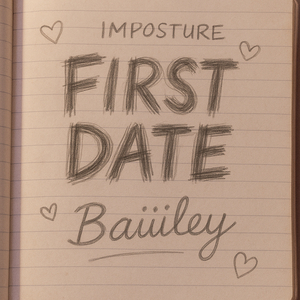 IMPOSTURE
FIRST
DATE
Baiiiley